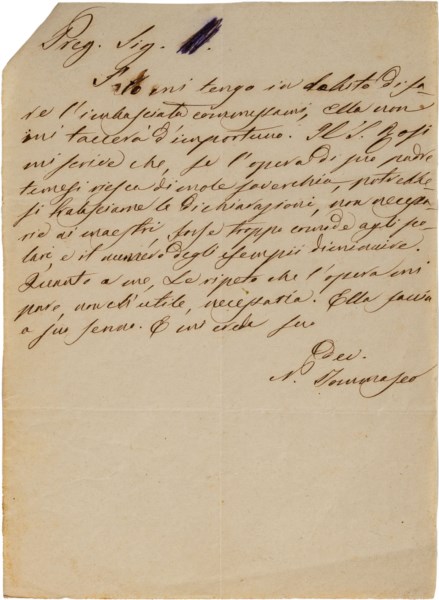 Preg. Sig.
Io mi tengo in debito di fa-
re l'imbasciata commessami, Ella non
mi taccerà d'importuno. Il S. Rosi
mi scrive che, se l'opera di suo padre
temesi riesca di mole soverchia, potrebbe-
si tralasciarne le dichiarazioni, non necessa-
rie ai maestri, forse troppe comode agli sco-
lari, e il numero degli esempii diminuire.
Quanto a me, Le ripeto che l'opera mi
pare, nonchè utile, necessaria. Ella faccia
a suo senno. E mi creda suo
dev.
N. Tommaseo